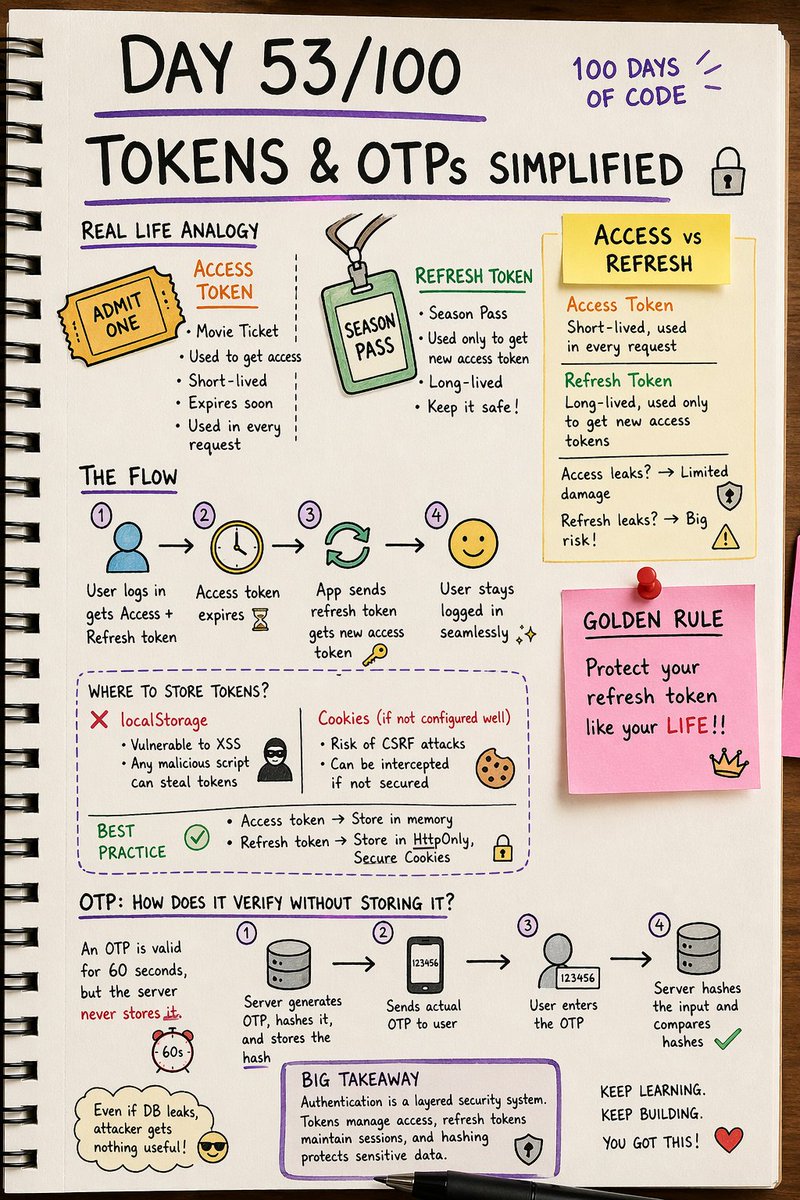 DAY 53/100
100 DAYS
OF CODE
TOKENS & OTPs SIMPLIFIED
REAL LIFE ANALOGY
ADMIT
ONE
ACCESS
TOKEN
• Movie Ticket
• Used to get access
• Short-lived
• Expires soon
• Used in every
request
SEASON
PASS
REFRESH TOKEN
• Season Pass
• Used only to get
new access token
• Long-lived
• Keep it safe!
ACCESS vs
REFRESH
Access Token
Short-lived, used
in every request
Refresh Token
Long-lived, used only
to get new access
tokens
Access leaks? → Limited
damage
Refresh leaks? → Big
risk!
THE FLOW
1
User logs in
gets Access +
Refresh token
2
Access token
expires
3
App sends
refresh token
gets new access
token
4
User stays
logged in
seamlessly
GOLDEN RULE
Protect your
refresh token
like your LIFE!!
WHERE TO STORE TOKENS?
localStorage
• Vulnerable to XSS
• Any malicious script
can steal tokens
Cookies (if not configured well)
• Risk of CSRF attacks
• Can be intercepted
if not secured
BEST
PRACTICE
• Access token → Store in memory
• Refresh token → Store in HttpOnly,
Secure Cookies
OTP: HOW DOES IT VERIFY WITHOUT STORING IT?
An OTP is valid
for 60 seconds,
but the server
never stores it.
60s
1
Server generates
OTP, hashes it,
and stores the
hash
2
123456
Sends actual
OTP to user
3
123456
User enters
the OTP
4
Server hashes
the input and
compares
hashes
Even if DB leaks,
attacker gets
nothing useful!
BIG TAKEAWAY
Authentication is a layered security system.
Tokens manage access, refresh tokens
maintain sessions, and hashing
protects sensitive data.
KEEP LEARNING.
KEEP BUILDING.
YOU GOT THIS!